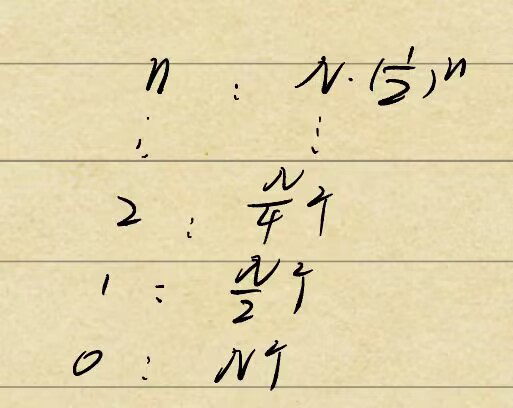 n : N·(1/2)^n
⋮ ⋮
2 : N/4 个
1 : N/2 个
0 : N个